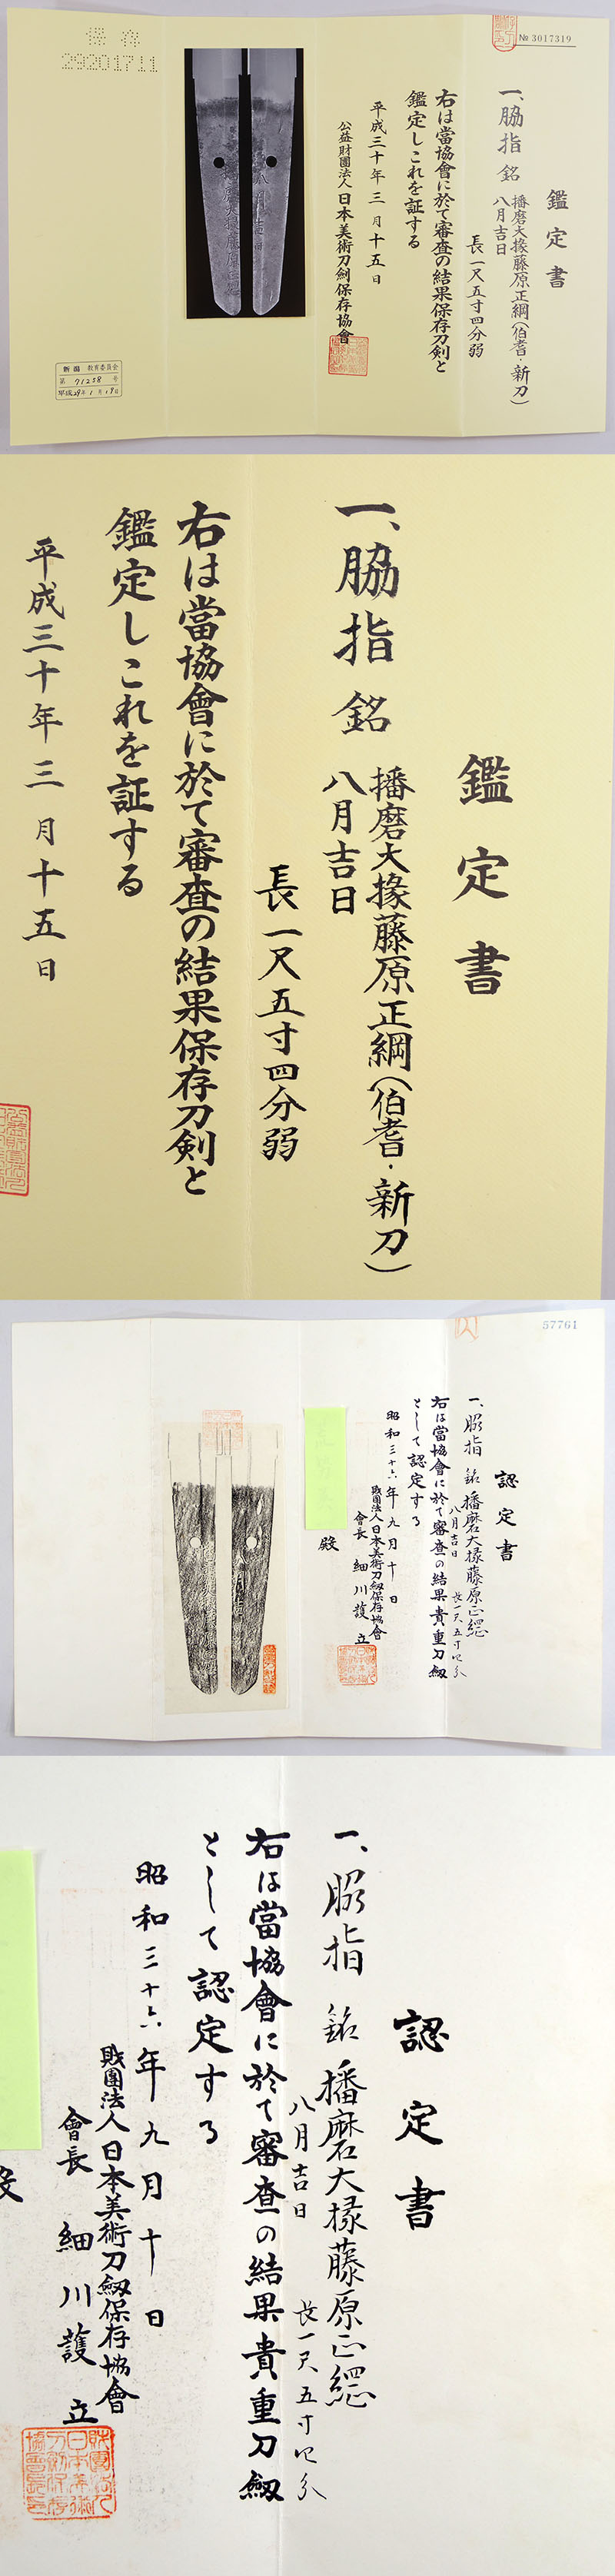 保存
29201711
№ 3017319
鑑定書
一、脇指 銘 播磨大掾藤原正綱(伯耆・新刀)
八月吉日
長一尺五寸四分弱
右は當協會に於て審査の結果保存刀剣と
鑑定しこれを証する
平成三十年三月十五日
公益財團法人 日本美術刀剣保存協會
新潟 教育委員会
第 71258 号
平成29年1月19日
鑑定書
一、脇指 銘 播磨大掾藤原正綱(伯耆・新刀)
八月吉日
長一尺五寸四分弱
右は當協會に於て審査の結果保存刀剣と
鑑定しこれを証する
平成三十年三月十五日
57761
認定書
一、脇指 銘 播磨大掾藤原正綱
八月吉日 長一尺五寸四分
右は當協會に於て審査の結果貴重刀劔
として認定する
昭和三十六年九月十日
財團法人日本美術刀劔保存協會
會長 細川護立
殿
認定書
一、脇指 銘 播磨大掾藤原正綱
八月吉日 長一尺五寸四分
右は當協會に於て審査の結果貴重刀劔
として認定する
昭和三十六年九月十日
財團法人日本美術刀劔保存協會
會長 細川護立
殿